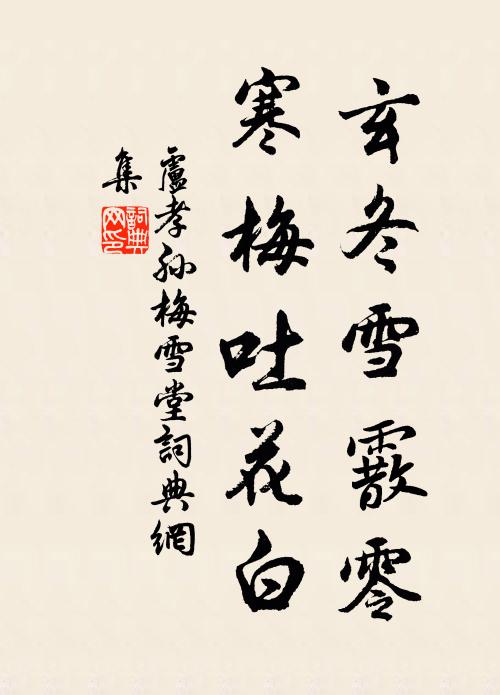 玄冬雪霰零
寒梅吐花白
盧孝孫梅雪堂詞典網
集
詞典網印